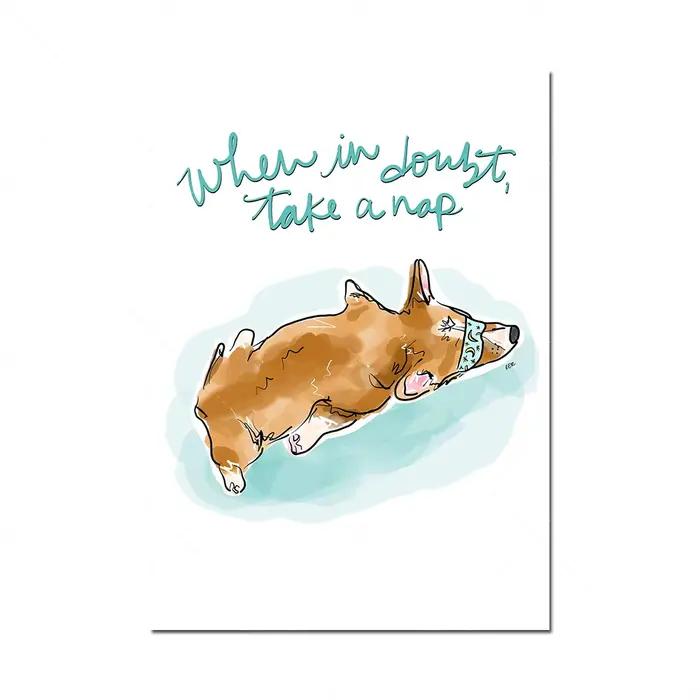 When in doubt,
take a nap